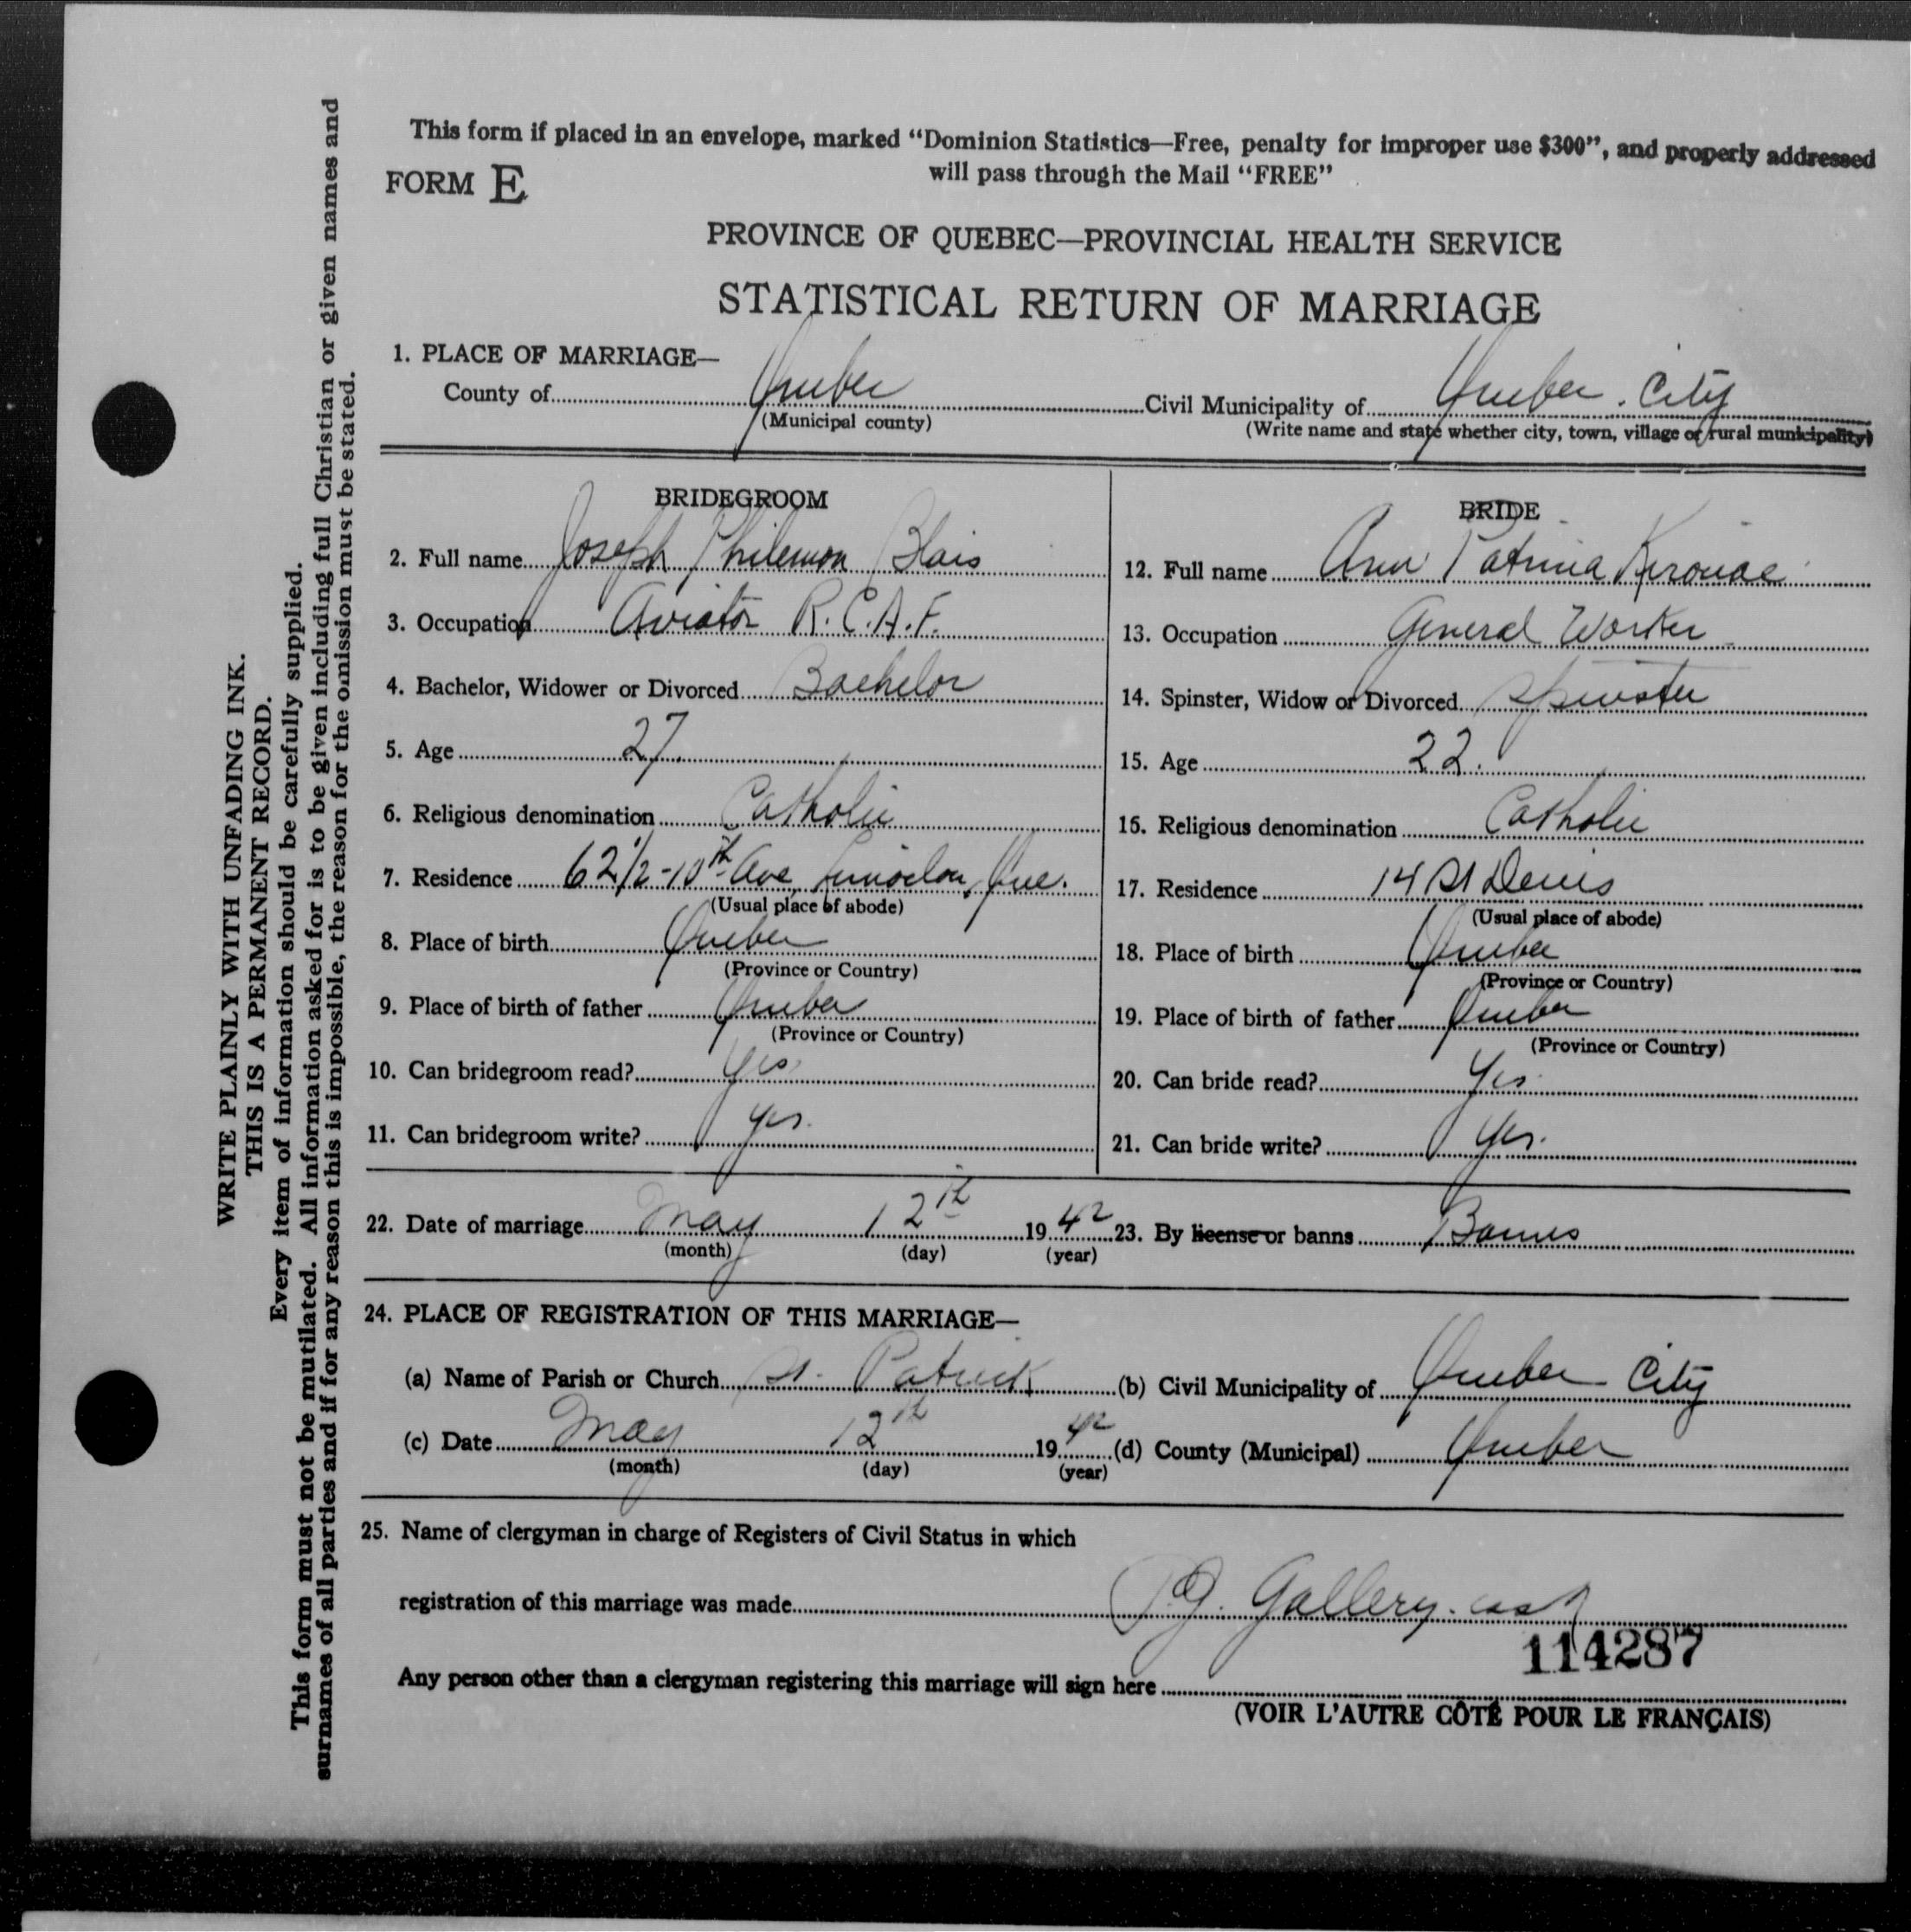 This form if placed in an envelope, marked “Dominion Statistics—Free, penalty for improper use $300”, and properly addressed
will pass through the Mail “FREE”
FORM E
PROVINCE OF QUEBEC—PROVINCIAL HEALTH SERVICE
STATISTICAL RETURN OF MARRIAGE
1. PLACE OF MARRIAGE—
County of Quebec Civil Municipality of Quebec City
(Municipal county) (Write name and state whether city, town, village or rural municipality)
BRIDEGROOM
2. Full name Joseph Philemon Blais
3. Occupation Aviator R.C.A.F.
4. Bachelor, Widower or Divorced Bachelor
5. Age 27.
6. Religious denomination Catholic
7. Residence 62½-10th Ave, Limoilou, Que.
(Usual place of abode)
8. Place of birth Quebec
(Province or Country)
9. Place of birth of father Quebec
(Province or Country)
10. Can bridegroom read? Yes
11. Can bridegroom write? Yes.
BRIDE
12. Full name Ann Patricia Kirouac
13. Occupation General Worker
14. Spinster, Widow or Divorced Spinster
15. Age 22.
16. Religious denomination Catholic
17. Residence 14 St Denis
(Usual place of abode)
18. Place of birth Quebec
(Province or Country)
19. Place of birth of father Quebec
(Province or Country)
20. Can bride read? Yes
21. Can bride write? Yes.
22. Date of marriage May 12th 1942 23. By license or banns Banns
(month) (day) (year)
24. PLACE OF REGISTRATION OF THIS MARRIAGE—
(a) Name of Parish or Church St. Patrick (b) Civil Municipality of Quebec City
(c) Date May 12th 1942 (d) County (Municipal) Quebec
(month) (day) (year)
25. Name of clergyman in charge of Registers of Civil Status in which
registration of this marriage was made Gallery
114287
Any person other than a clergyman registering this marriage will sign here
(VOIR L'AUTRE CÔTÉ POUR LE FRANÇAIS)
WRITE PLAINLY WITH UNFADING INK.
THIS IS A PERMANENT RECORD.
Every item of information should be carefully supplied.
This form must not be mutilated. All information asked for is to be given including full Christian or given names and
surnames of all parties and if for any reason this is impossible, the reason for the omission must be stated.